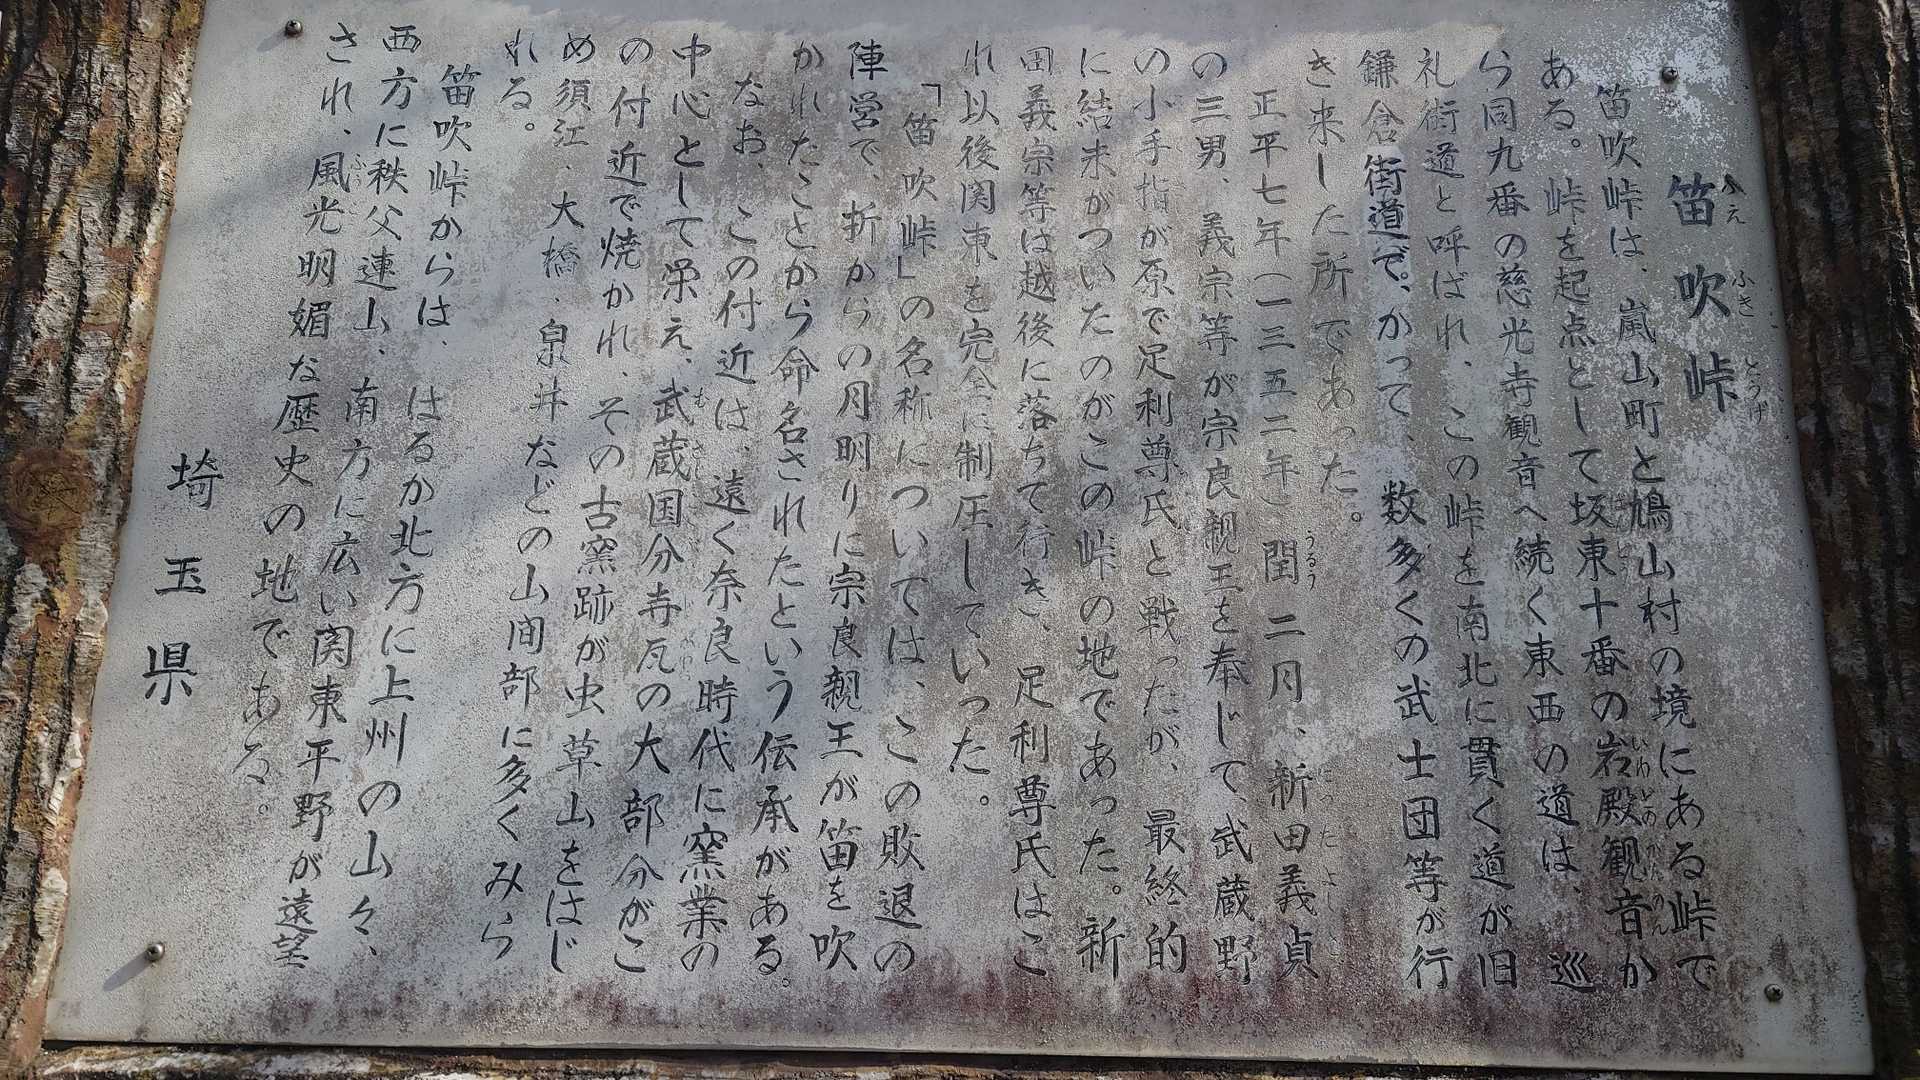 笛吹峠
笛吹峠は、嵐山町と鳩山村の境にある峠で
ある。峠を起点として坂東十番の岩殿観音か
ら同九番の慈光寺観音へ続く東西の道は、巡
礼街道と呼ばれ、この峠を南北に貫く道が旧
鎌倉街道で、かって、数多くの武士団等が行
き来した所であった。
正平七年(一三五二年)閏二月、新田義貞
の三男、義宗等が宗良親王を奉じて、武蔵野
の小手指が原で足利尊氏と戦ったが、最終的
に結末がついたのがこの峠の地であった。新
田義宗等は越後に落ちて行き、足利尊氏はこ
れ以後関東を完全に制圧していった。
「笛吹峠」の名称については、この敗退の
陣営で、折からの月明りに宗良親王が笛を吹
かれたことから命名されたという伝承がある。
なお、この付近は、遠く奈良時代に窯業の
中心として栄え、武蔵国分寺瓦の大部分がこ
の付近で焼かれ、その古窯跡が虫草山をはじ
め須江、大橋、泉井などの山間部に多くみら
れる。
笛吹峠からは、はるか北方に上州の山々、
西方に秩父連山、南方に広い関東平野が遠望
され、風光明媚な歴史の地である。
埼玉県